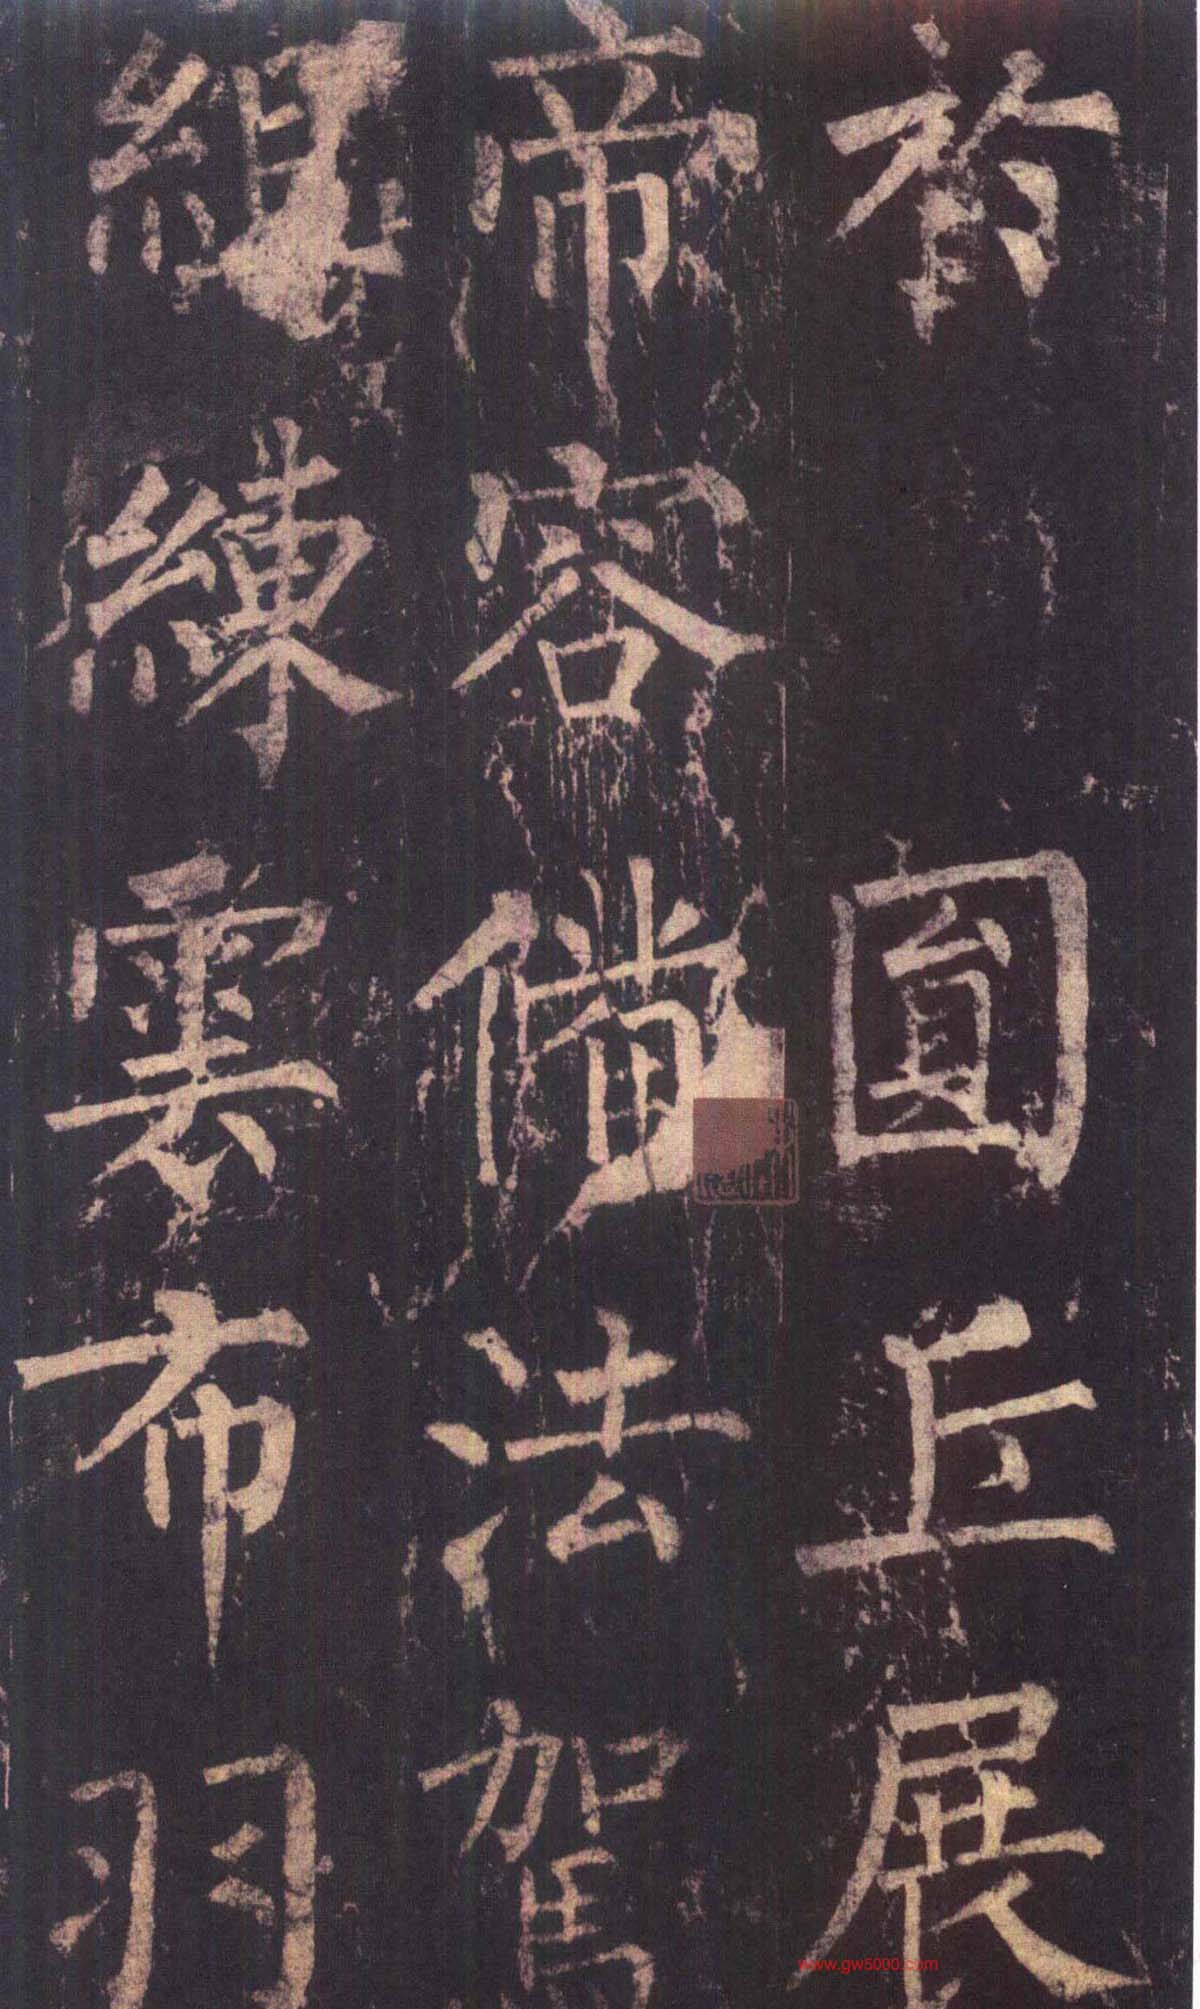 於圓丘展
帝容備法駕
組練雲布羽
www.gw5000.com